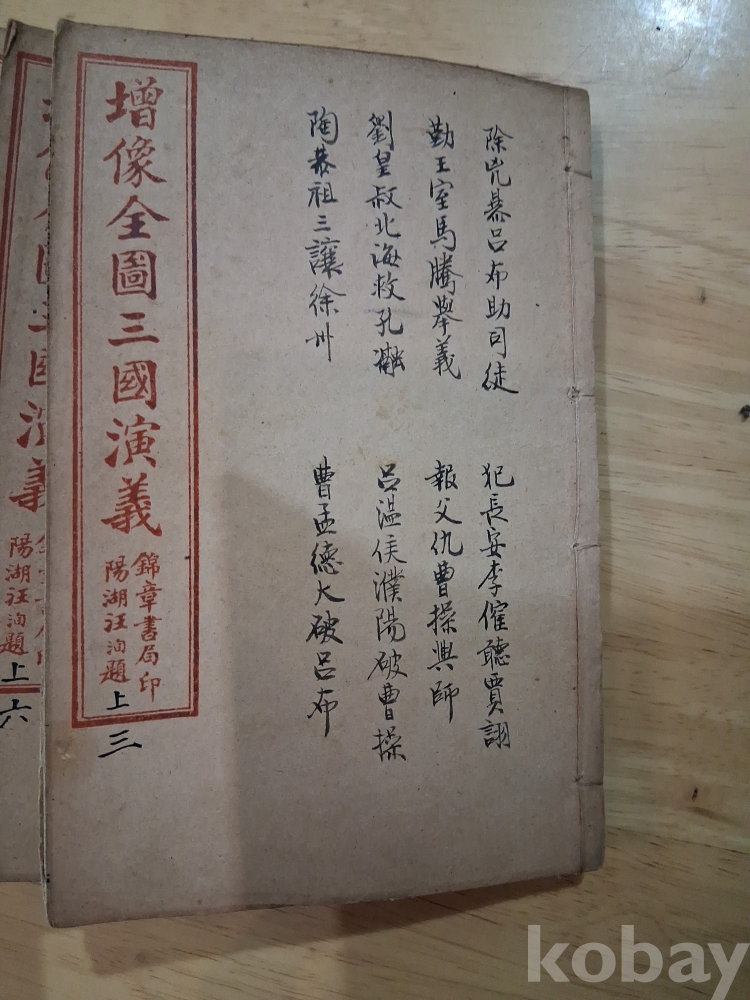 除兇暴呂布助司徒
犯長安李傕聽賈詡
勤王室馬騰舉義
報父仇曹操興師
劉皇叔北海救孔融
呂溫侯濮陽破曹操
陶恭祖三讓徐州
曹孟德大破呂布
增像全圖三國演義
錦章書局印
陽湖汪洵題
上
三
國演義
陽湖汪洵題
上
六
kobay